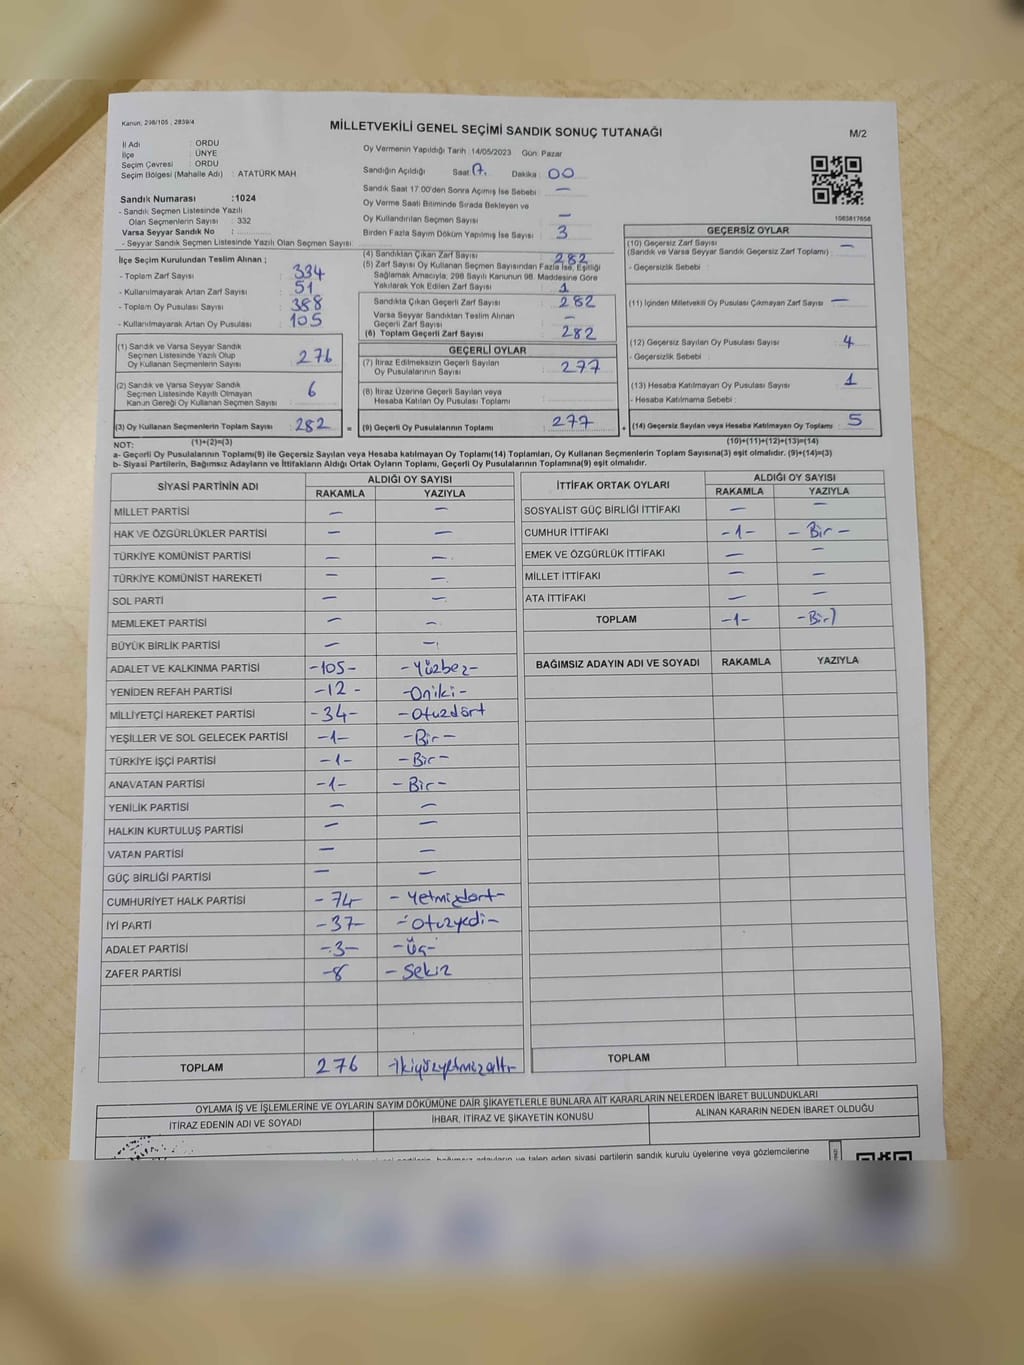 Kanun, 298/105 , 2839/4
MİLLETVEKİLİ GENEL SEÇİMİ SANDIK SONUÇ TUTANAĞI
M/2
İl Adı : ORDU
İlçe : ÜNYE
Seçim Çevresi : ORDU
Seçim Bölgesi (Mahalle Adı) : ATATÜRK MAH
Sandık Numarası :1024
- Sandık Seçmen Listesinde Yazılı
Olan Seçmenlerin Sayısı : 332
Varsa Seyyar Sandık No :
- Seyyar Sandık Seçmen Listesinde Yazılı Olan Seçmen Sayısı:
Oy Vermenin Yapıldığı Tarih :14/05/2023 Gün: Pazar
Sandığın Açıldığı Saat: 17. Dakika : 00
Sandık Saat 17:00'den Sonra Açılmış İse Sebebi : —
Oy Verme Saati Bitiminde Sırada Bekleyen ve
Oy Kullandırılan Seçmen Sayısı : —
Birden Fazla Sayım Döküm Yapılmış İse Sayısı : 3
1063817656
İlçe Seçim Kurulundan Teslim Alınan ;
- Toplam Zarf Sayısı : 334
- Kullanılmayarak Artan Zarf Sayısı : 51
- Toplam Oy Pusulası Sayısı : 388
- Kullanılmayarak Artan Oy Pusulası : 105
(1) Sandık ve Varsa Seyyar Sandık
Seçmen Listesinde Yazılı Olup
Oy Kullanan Seçmenlerin Sayısı : 276
(2) Sandık ve Varsa Seyyar Sandık
Seçmen Listesinde Kayıtlı Olmayan
Kanun Gereği Oy Kullanan Seçmen Sayısı : 6
(3) Oy Kullanan Seçmenlerin Toplam Sayısı : 282 =
(4) Sandıktan Çıkan Zarf Sayısı : 282
(5) Zarf Sayısı Oy Kullanan Seçmen Sayısından Fazla İse, Eşitliği
Sağlamak Amacıyla, 298 Sayılı Kanunun 98. Maddesine Göre
Yakılarak Yok Edilen Zarf Sayısı : 1
Sandıkta Çıkan Geçerli Zarf Sayısı : 282
Varsa Seyyar Sandıktan Teslim Alınan
Geçerli Zarf Sayısı : —
(6) Toplam Geçerli Zarf Sayısı : 282
GEÇERLİ OYLAR
(7) İtiraz Edilmeksizin Geçerli Sayılan
Oy Pusulalarının Sayısı : 277
(8) İtiraz Üzerine Geçerli Sayılan veya
Hesaba Katılan Oy Pusulası Toplamı :
(9) Geçerli Oy Pusulalarının Toplamı : 277 +
GEÇERSİZ OYLAR
(10) Geçersiz Zarf Sayısı
(Sandık ve Varsa Seyyar Sandık Geçersiz Zarf Toplamı) : —
- Geçersizlik Sebebi :
(11) İçinden Milletvekili Oy Pusulası Çıkmayan Zarf Sayısı : —
(12) Geçersiz Sayılan Oy Pusulası Sayısı : 4
- Geçersizlik Sebebi :
(13) Hesaba Katılmayan Oy Pusulası Sayısı : 1
- Hesaba Katılmama Sebebi :
(14) Geçersiz Sayılan veya Hesaba Katılmayan Oy Toplamı : 5
NOT: (1)+(2)=(3) (10)+(11)+(12)+(13)=(14)
a- Geçerli Oy Pusulalarının Toplamı(9) ile Geçersiz Sayılan veya Hesaba katılmayan Oy Toplamı(14) Toplamları, Oy Kullanan Seçmenlerin Toplam Sayısına(3) eşit olmalıdır. (9)+(14)=(3)
b- Siyasi Partilerin, Bağımsız Adayların ve İttifakların Aldığı Ortak Oyların Toplamı, Geçerli Oy Pusulalarının Toplamına(9) eşit olmalıdır.
SİYASİ PARTİNİN ADI ALDIĞI OY SAYISI
RAKAMLA YAZIYLA
MİLLET PARTİSİ — —
HAK VE ÖZGÜRLÜKLER PARTİSİ — —
TÜRKİYE KOMÜNİST PARTİSİ — —
TÜRKİYE KOMÜNİST HAREKETİ — —
SOL PARTİ — —
MEMLEKET PARTİSİ — —
BÜYÜK BİRLİK PARTİSİ — —
ADALET VE KALKINMA PARTİSİ -105- -Yüzbeş-
YENİDEN REFAH PARTİSİ -12- -Oniki-
MİLLİYETÇİ HAREKET PARTİSİ -34- -Otuzdört
YEŞİLLER VE SOL GELECEK PARTİSİ -1- -Bir-
TÜRKİYE İŞÇİ PARTİSİ -1- -Bir-
ANAVATAN PARTİSİ -1- -Bir-
YENİLİK PARTİSİ — —
HALKIN KURTULUŞ PARTİSİ — —
VATAN PARTİSİ — —
GÜÇ BİRLİĞİ PARTİSİ — —
CUMHURİYET HALK PARTİSİ -74 -Yetmişdört-
İYİ PARTİ -37- -Otuzyedi-
ADALET PARTİSİ -3- -Üç-
ZAFER PARTİSİ -8 -Sekiz
TOPLAM 276 -İkiyüzyetmişaltı-
İTTİFAK ORTAK OYLARI ALDIĞI OY SAYISI
RAKAMLA YAZIYLA
SOSYALİST GÜÇ BİRLİĞİ İTTİFAKI — —
CUMHUR İTTİFAKI -1- -Bir-
EMEK VE ÖZGÜRLÜK İTTİFAKI — —
MİLLET İTTİFAKI — —
ATA İTTİFAKI — —
TOPLAM -1- -Bir-
BAĞIMSIZ ADAYIN ADI VE SOYADI RAKAMLA YAZIYLA
TOPLAM
OYLAMA İŞ VE İŞLEMLERİNE VE OYLARIN SAYIM DÖKÜMÜNE DAİR ŞİKAYETLERLE BUNLARA AİT KARARLARIN NELERDEN İBARET BULUNDUKLARI
İTİRAZ EDENİN ADI VE SOYADI İHBAR, İTİRAZ VE ŞİKAYETİN KONUSU ALINAN KARARIN NEDEN İBARET OLDUĞU
partilerin sandık kurulu üyelerine veya gözlemcilerine